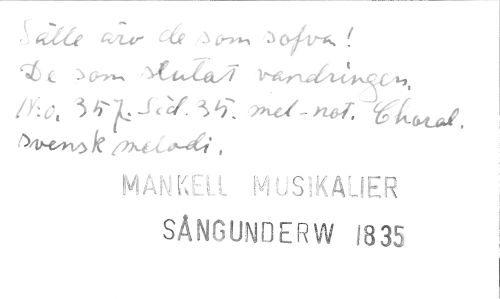 Sälle äro de som sofva!
De som slutat vandringen.
N:o. 357. Sid. 35. mel-not. Choral.
svensk melodi.
MANKELL MUSIKALIER
SÅNGUNDERW 1835